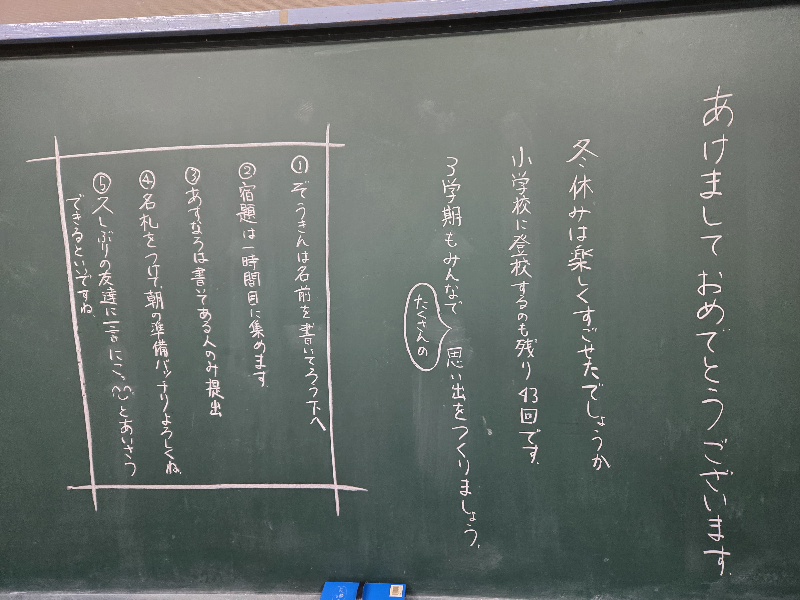 あけましておめでとうございます。
冬休みは楽しくすごせたでしょうか
小学校に登校するのも残り43回です。
3学期もみんなで思い出をつくりましょう。
たくさんの
① ぞうきんは名前を書いてろう下へ
② 宿題は一時間目に集めます。
③ あすなろは書いてある人のみ提出
④ 名札をつけて朝の準備バッチリよろしくね。
⑤ 久しぶりの友達に一言にこっ^^とあいさつ
できるといいですね。